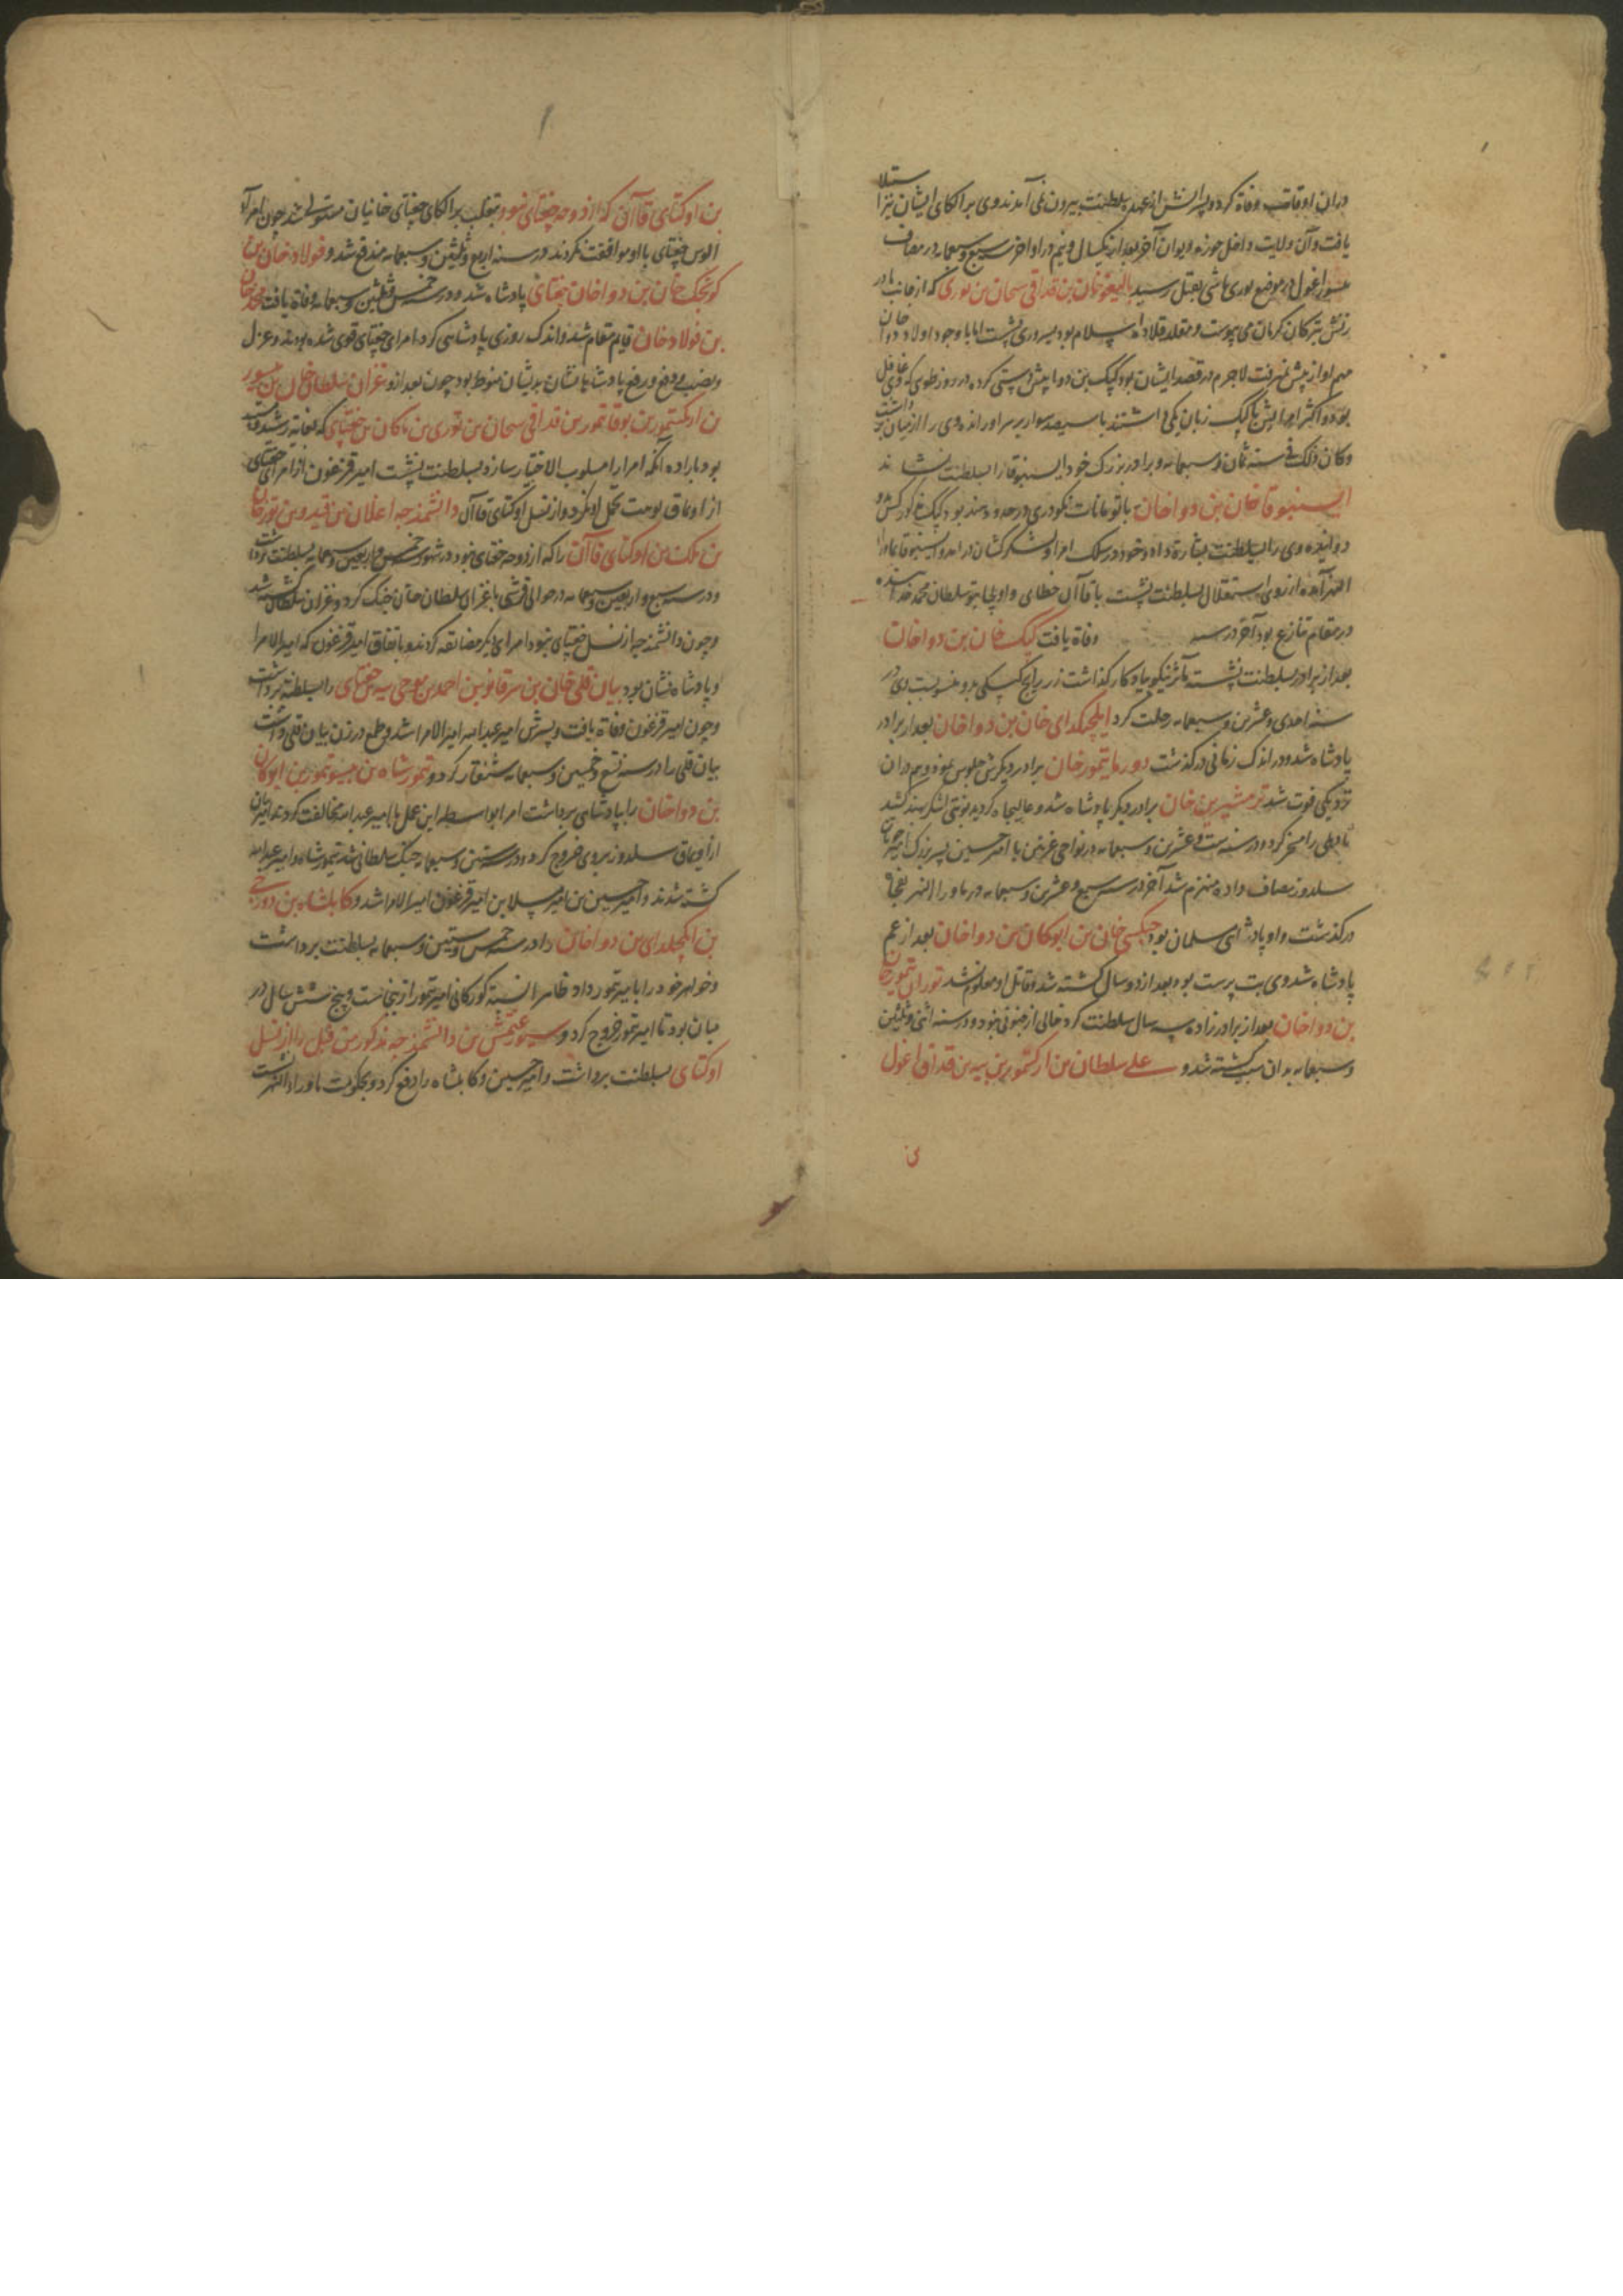 دران اوقات وفاة کرد و پسرانش از عهده سلطنت بیرون نمی آمدند وی بر الکای ایشان نیز استیلا
یافت و آن ولایت داخل حوزه دیوان آخر بعد از یکسال و نیم در اواخر سنه سبع و سبعمایه در مصاف
اغول در موضع بقتل رسید تالیغو خان بن قداقی بن بوری که از جانب مادر
بترکان کرمان می پیوست و مقلد قلاده اسلام بود بسروری نشست اما با وجود اولاد دوا خان
مهم او از پیش نمیرفت لاجرم در قصد ایشان بود کپک بن دوا پیش دستی کرده در روز طوی که وی غافل
بود و اکثر امرایش با کپک زبان یکی داشتند با سیصد سوار بر سر او رانده وی را از میان برداشت
وکان ذلک فی سنه ثمان و سبعمایه و برادر بزرگ خود ایسنبوقا را بسلطنت نشاند
ایسنبوقا خان بن دوا خان با تومانات نکودری در حدود هند بود کپک کورکش
دوانیده وی را بسلطنت بشارت داد و خود در سلک امرا و لشکرکشان درآمد و ایسنبوقا بماورا
النهر آمده از روی استقلال بسلطنت نشست با قاآن خطای و اولجایتو سلطان محمد خدابنده
در مقام تنازع بود آخر در سنه وفاة یافت کپک خان بن دوا خان
بعد از برادر بسلطنت نشسته مآثر نیکو یادکار کذاشت زر رایج کپکی بدو منسوبست وی در
سنه احدی و عشرین و سبعمایه رحلت کرد ایلچکدای خان بن دوا خان بعد از برادر
پادشاه شد و در اندک زمانی درکذشت دورما تیمور خان برادر دیکرش جلوس نمود و هم دران
نزدیکی فوت شد ترمشیرین خان برادر دیکر پادشاه شد و عالیجاه کردید نوبتی لشکر بهند کشید
تا دهلی را مسخر کرد و در سنه ست و عشرین و سبعمایه در نواحی غزنین با امیر حسین پسر بزرک امیر چوپان
سلدوز مصاف داده منهزم شد آخر در سنه سبع و عشرین و سبعمایه در ماورا النهر
درکذشت و او پادشاهی مسلمان بود جنکشی خان بن ابوکان بن دوا خان بعد از عم
پادشاه شد وی بت پرست بود بعد از دو سال کشته شد و قاتل او معلوم نشد توران تیمور خان
بن دوا خان بعد از برادر زاده سه سال سلطنت کرد خالی از جنونی نبود و در سنه اثنی و ثلثین
و سبعمایه بدان سبب کشته شد و علی سلطان بن ارکتمور بن بیه بن قداقی اغول
بن اوکتای قاآن که از دوحه جغتای نبود بتغلب بر الکای جغتای خانیان مستولی شد چون امرا
الوس جغتای با او موافقت نکردند در سنه اربع و ثلثین و سبعمایه مندفع شد و فولاد خان بن
کونجک خان بن دوا خان جغتای پادشاه شد و در سنه خمس و ثلثین و سبعمایه وفاة یافت محمد خان
بن فولاد خان قایم مقام شد و اندک روزی پادشاهی کرد امرای جغتای قوی شده بودند و عزل
و نصب و دفع و رفع پادشاهانشان بدیشان منوط بود چون بعد ازو غزان سلطان خان بن یسور
بن اورکتمور بن بوقا تمور بن قداقی بن توری بن ماتکان بن جغتای که بغایت رشد
بود با راده انکه امرا را مسلوب الاختیار سازد بسلطنت نشست امیر قزغون از امرای جغتای
از اویماق بوست تحمل او نکرد و از نسل اوکتای قاآن دانشمندجه اغلان بن قیدو بن تورخان
بن ملک بن اوکتای قاآن را که از دوحه جغتای نبود در شهور خمس و اربعین و سبعمایه بسلطنت برداشت
و در سنه سبع و اربعین و سبعمایه در حوالی قرشی با غزان سلطان خان جنک کرد و غزان سلطان کشته شد
و چون دانشمندجه از نسل جغتای نبود امرای دیکر مضایقه کردند و باتفاق امیر قزغون که امیرالامرا
و پادشاه نشان بود بیان قلی خان بن سرقادو بن احمد بن بوجی بیه جغتای را بسلطنة برداشت
و چون امیر قزغون وفاة یافت و پسرش امیر عبدالله امیر الامرا شد و طمع در زن بیان قلی داشت
بیان قلی را در سنه تسع و خمسین و سبعمایه شنقار کرد و تیمور شاه بن ییسو تیمور بن ابوکان
بن دوا خان را بپادشاهی برداشت امرا بواسطه این عمل با امیر عبدالله مخالفت کردند امیر بیان
از اویماق سلدوز بروی خروج کرد و در ستین و سبعمایه جنک سلطانی شد تیمور شاه و امیر عبدالله
کشته شدند و امیر حسین بن امیر مسلا بن امیر قزغون امیر الامرا شد و کابلشاه بن دورجی
بن ایلچکدای بن دوا خان را در سنه خمس و ستین و سبعمایه بسلطنت برداشت
و خواهر خود را بامیر تیمور داد ظاهرا نسبت کورکانی امیر تیمور ازینجاست و پنج شش سال در
میان بود تا امیر تیمور خروج کرد و سیورغتمش بن دانشمندجه مذکور من قبل را از نسل
اوکتای بسلطنت برداشت و امیر حسین و کابلشاه را دفع کرد و بحکومت ماوراءالنهر نشست